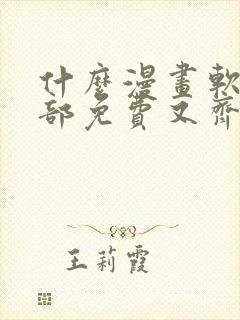 什麼漫畫軟
部免費又齊
王莉霞